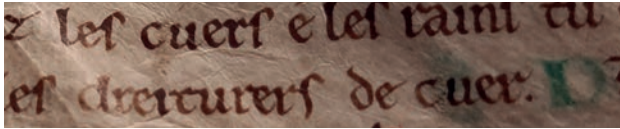 les cuers e les rains tu
es dreiturers de cuer. D